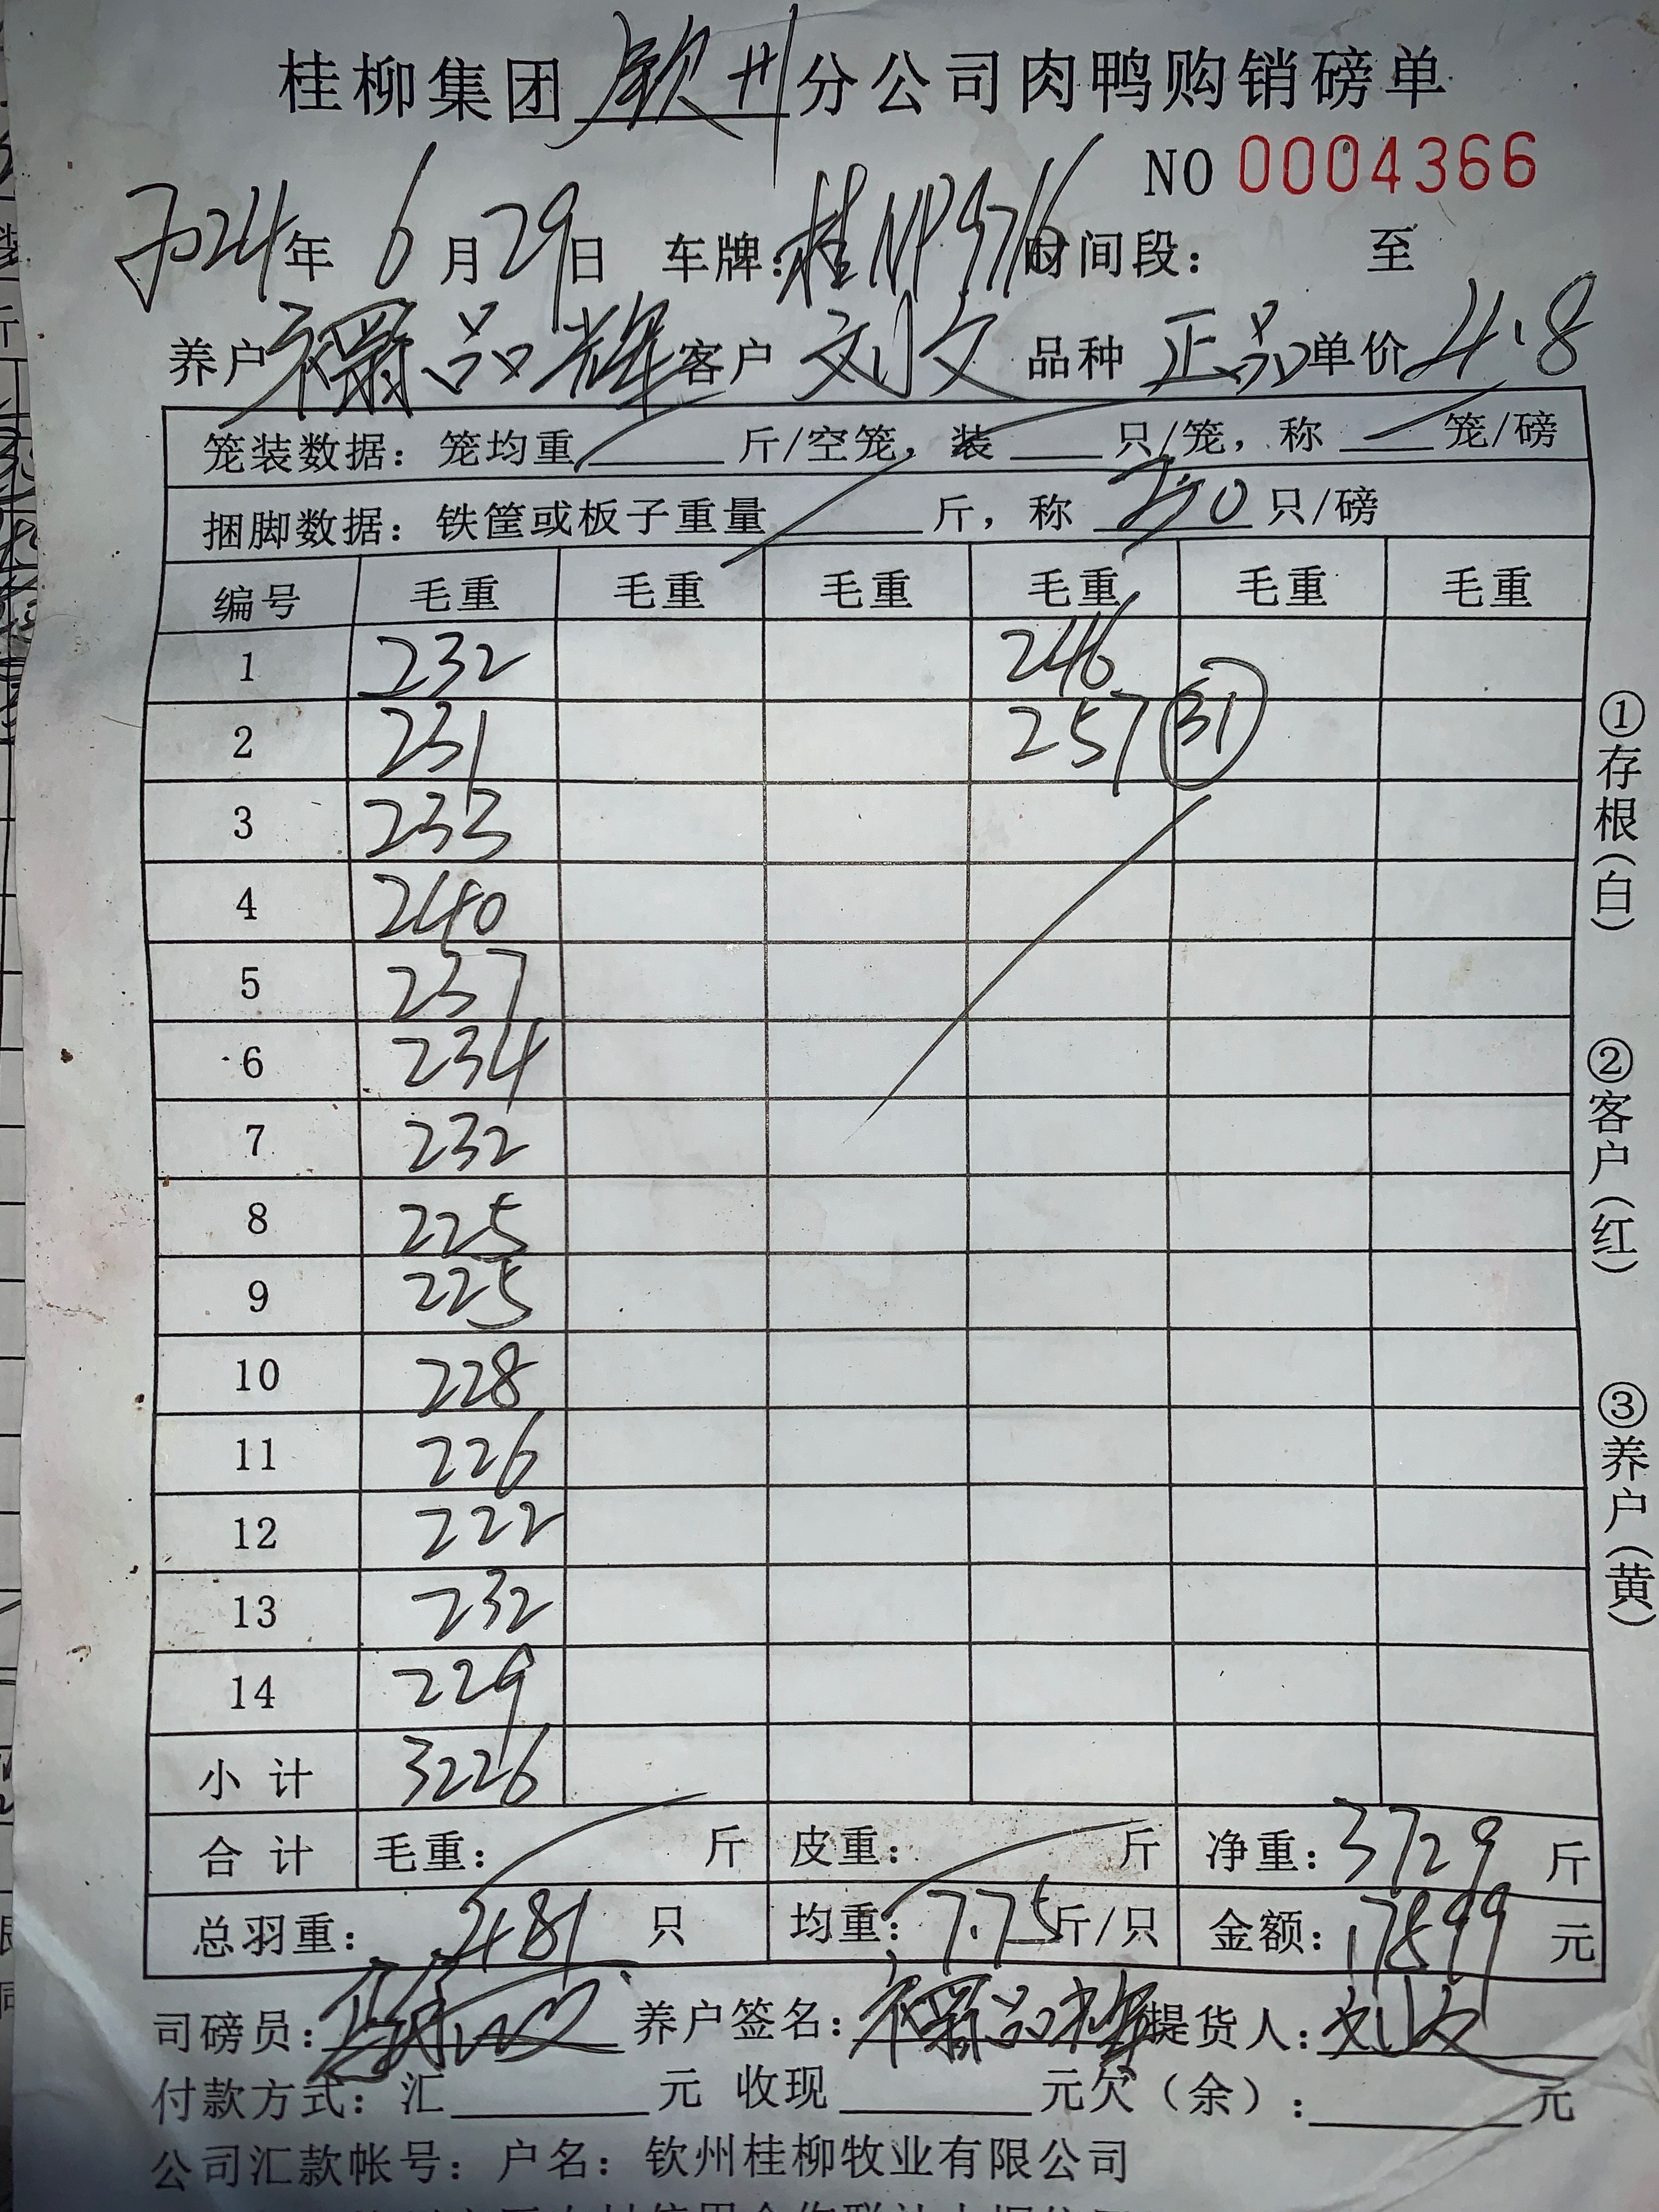 桂柳集团 钦州 分公司肉鸭购销磅单
NO 0004366
2024年 6月29日 车牌:桂NP9716 时间段: 至
养户 品辉 客户 刘文 品种 正品 单价 4.8
笼装数据: 笼均重 斤/空笼, 装 只/笼, 称 笼/磅
捆脚数据: 铁筐或板子重量 斤, 称 30 只/磅
编号 毛重 毛重 毛重 毛重 毛重 毛重
1 232 246
2 231 257 31
3 233
4 240
5 237
6 234
7 232
8 225
9 225
10 228
11 226
12 222
13 232
14 229
小计 3226
合计 毛重: 斤 皮重: 斤 净重: 3729 斤
总羽重: 481 只 均重: 7.75 斤/只 金额: 17899 元
司磅员: 养户签名: 品辉 提货人: 刘文
付款方式: 汇 元 收现 元欠(余): 元
公司汇款帐号: 户名: 钦州桂柳牧业有限公司
①存根(白)
②客户(红)
③养户(黄)